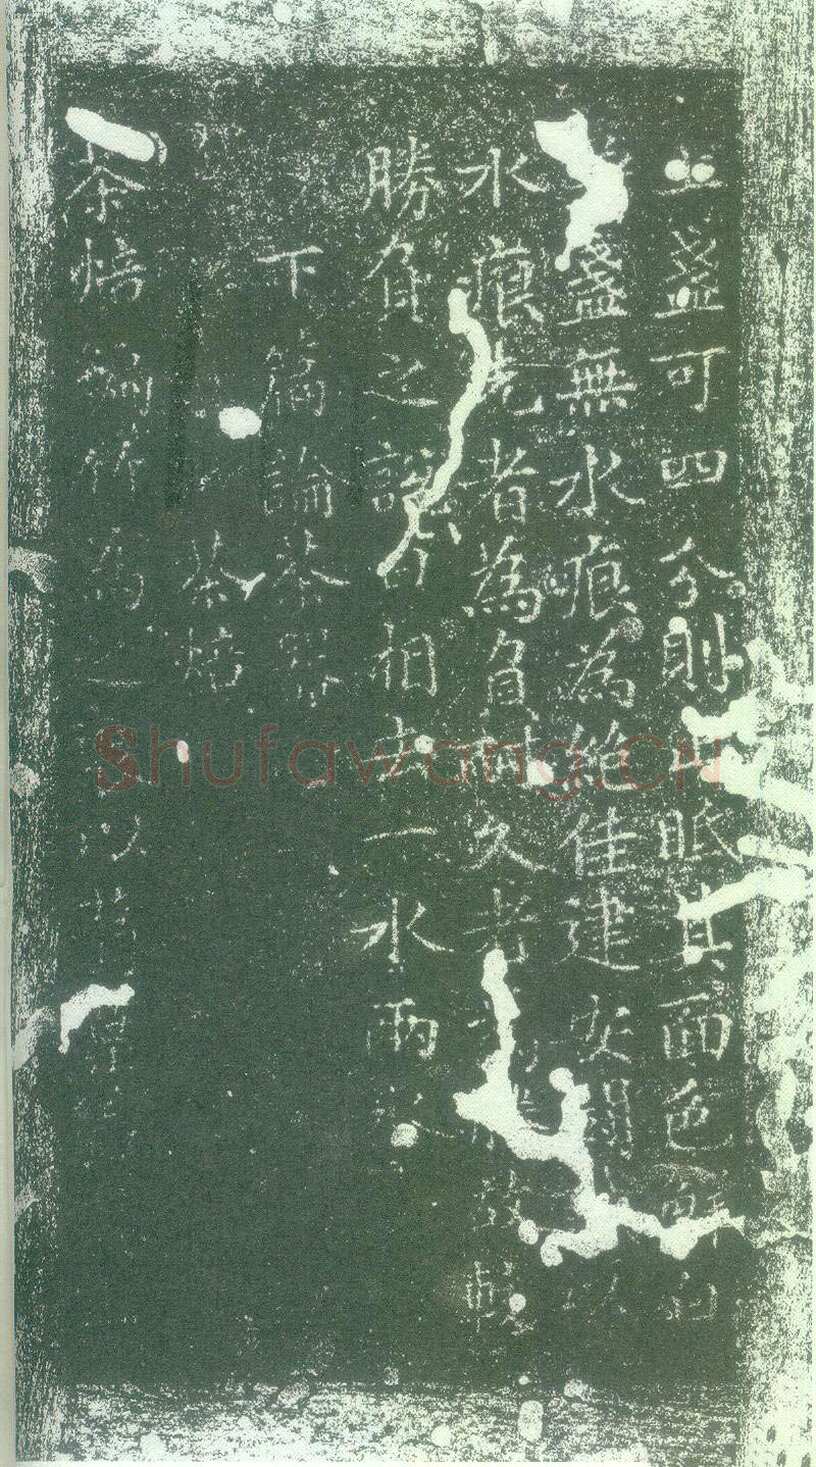 上盞可四分則止眂其面色鮮白
盞無水痕為絶佳建安鬭以
水痕先者為負耐久者為勝故較
勝負之說曰相去一水兩水
下篇論茶器
茶焙
茶焙編竹為之以
ShufaWang.CN